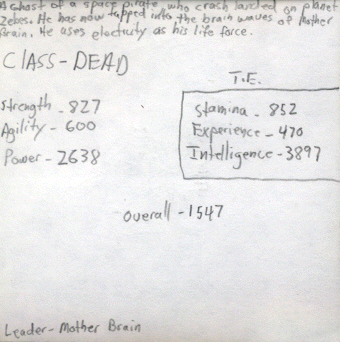 A Ghost of a space pirate who crash landed on planet
Zebes. He has now tapped into the brain waves of Mother
Brain. He uses electricity as his life force.
CLASS-DEAD
T.E.
Strength - 827
Agility - 600
Power - 2638
Stamina - 852
Experience - 470
Intelligence - 3897
overall - 1547
Leader - Mother Brain